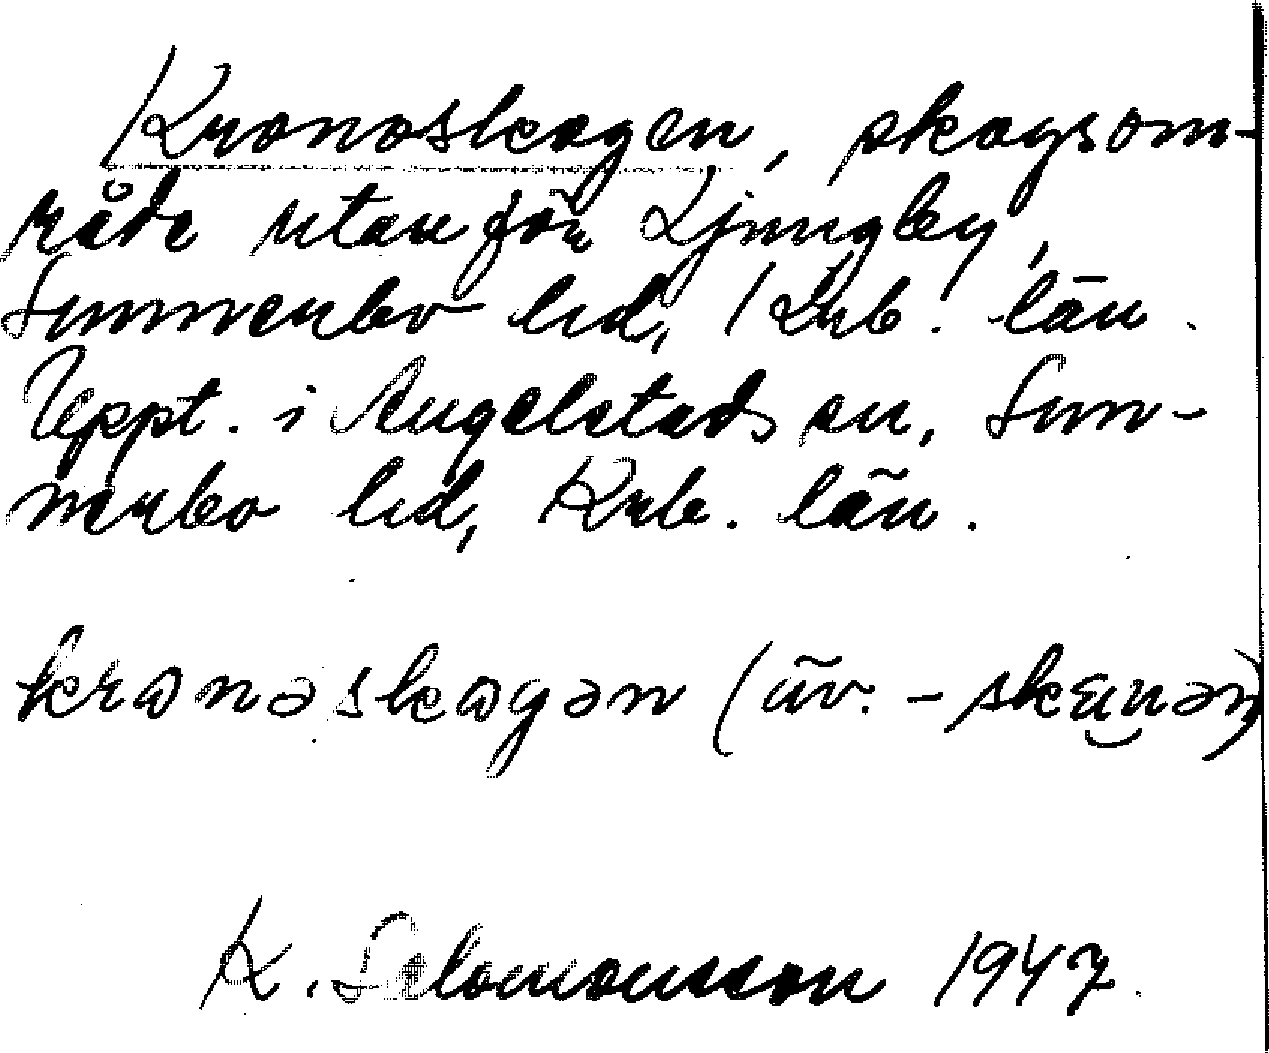 Kronoskogen, skogsom-
råde utanför Ljungby,
Sunnerbo hd, Krb. län.
Uppt. i Angelstads sn, Sun-
nerbo hd, Krb. län.
kronəskogən (äv. -
K. Salomonsson 1947.